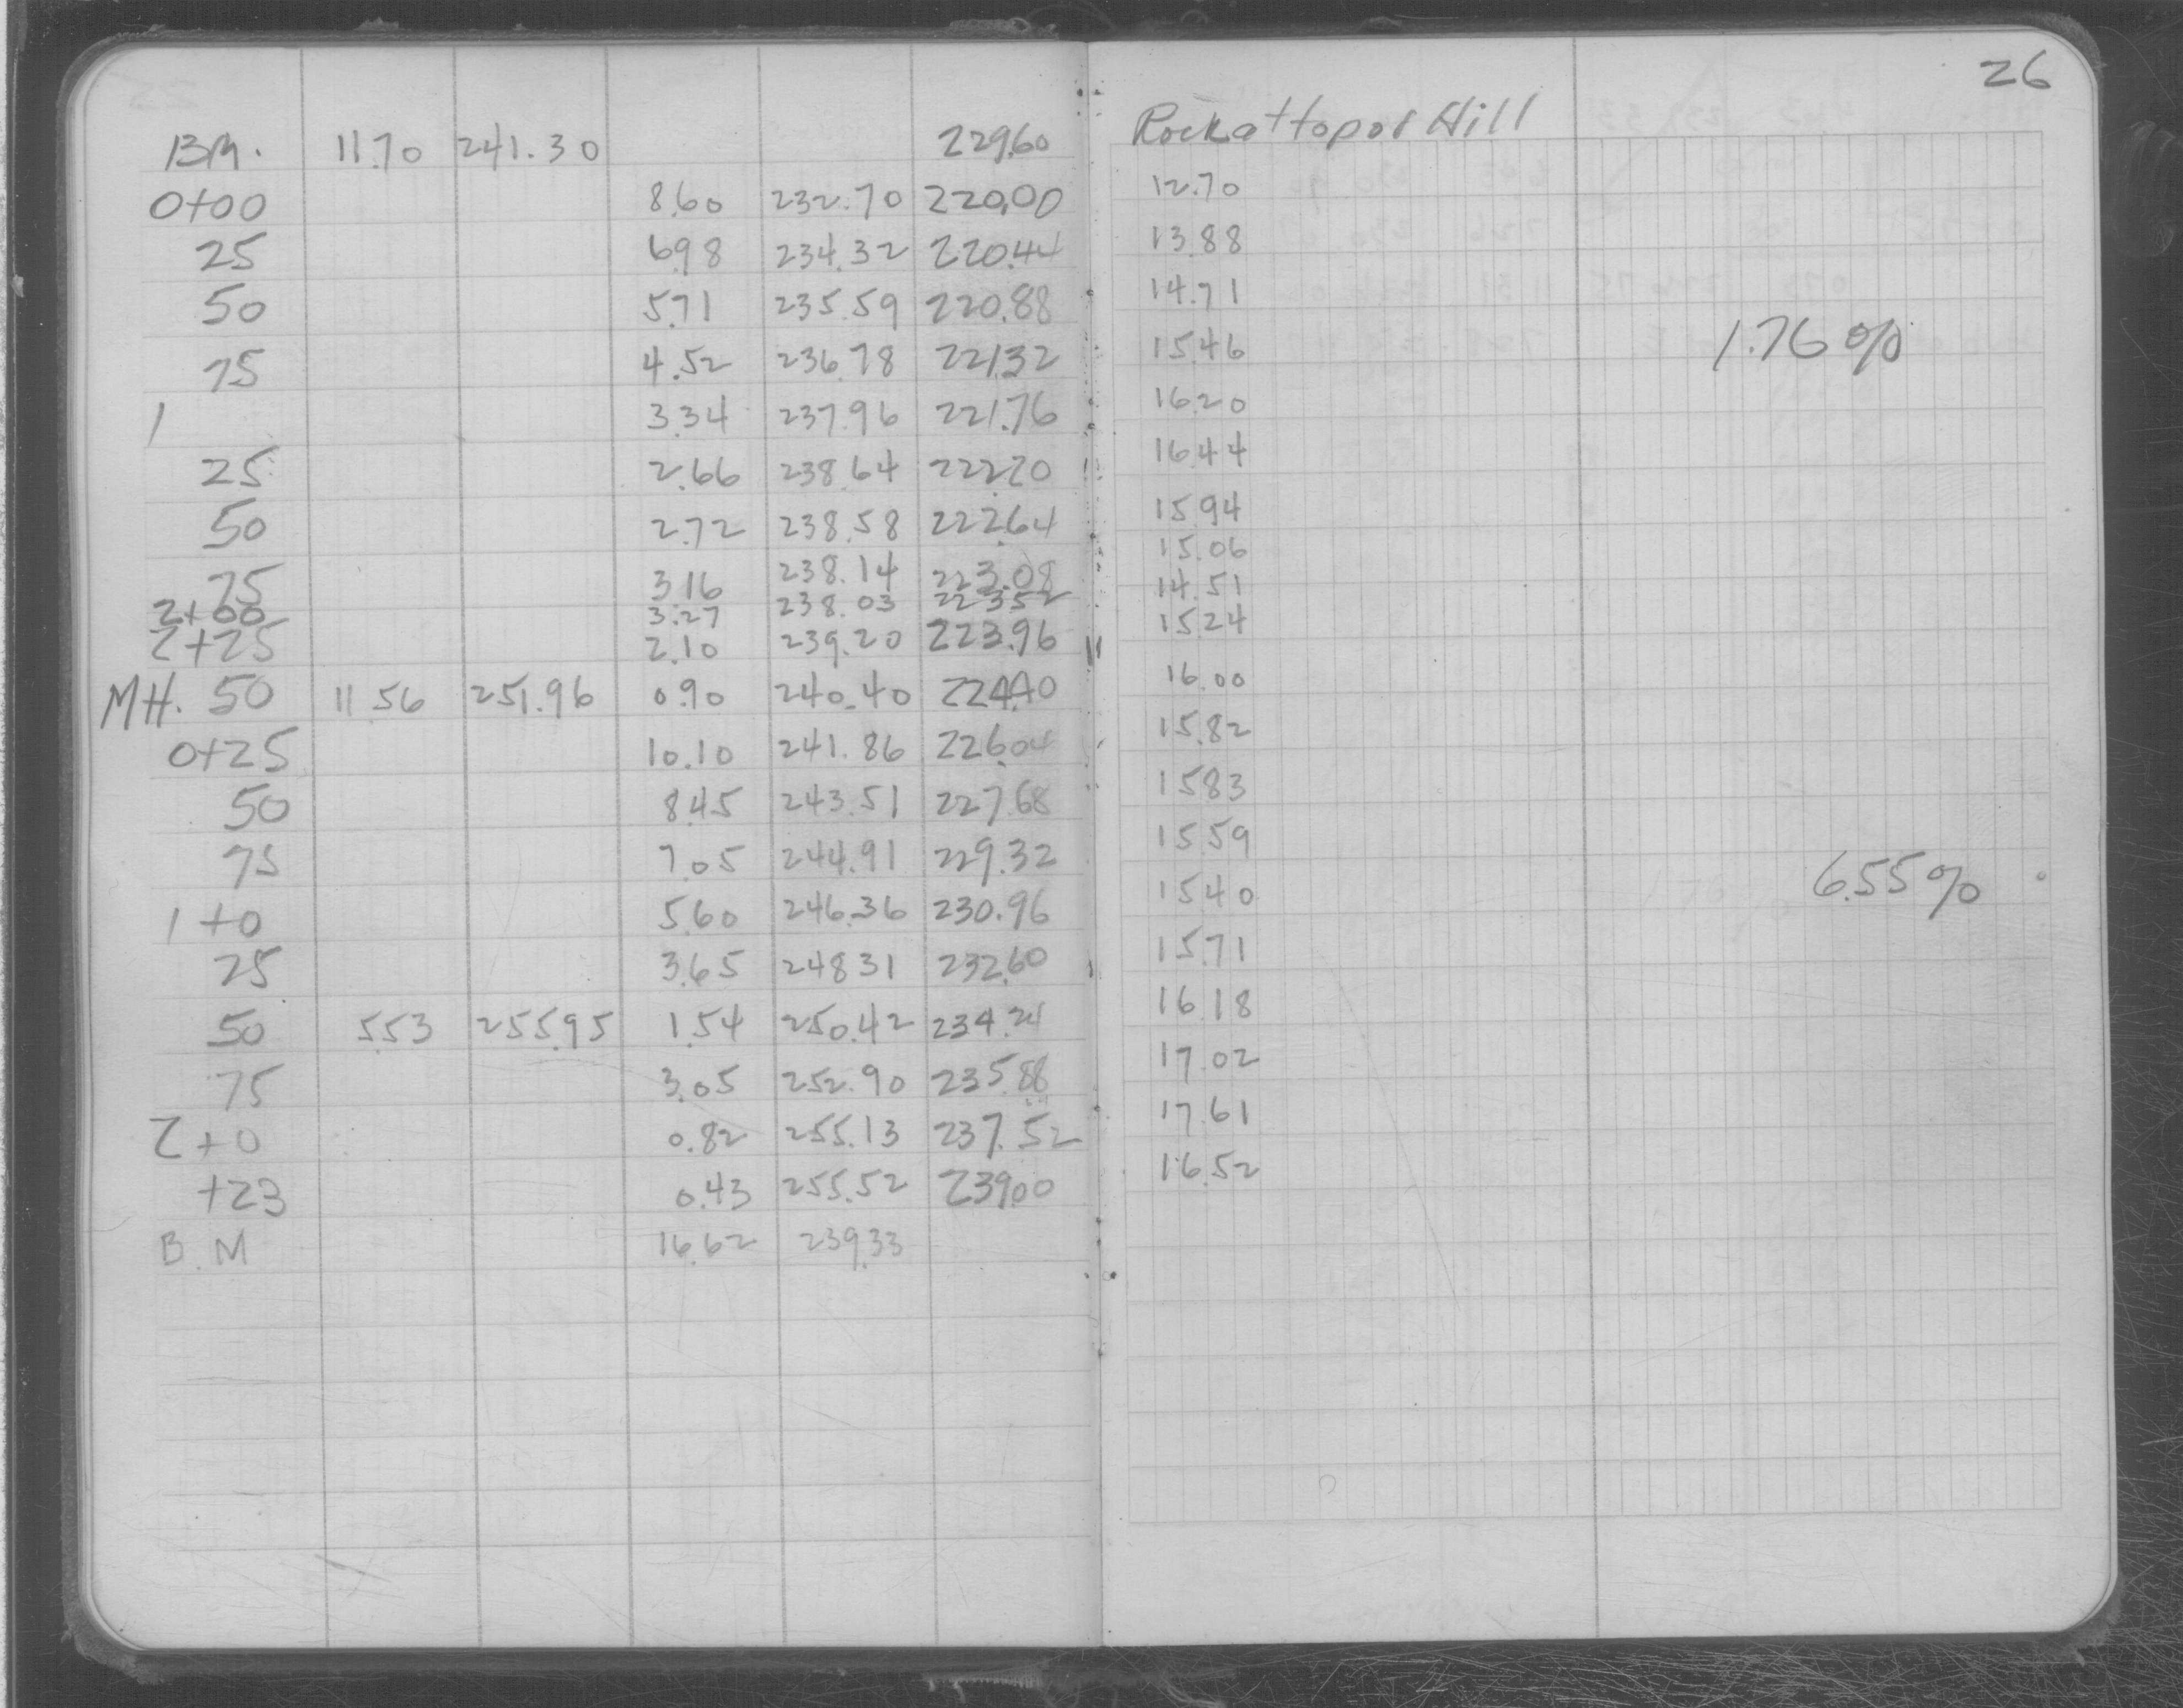 26
BM. 11.70 241.30 229.60 Rock at top of Hill
0+00 8.60 232.70 220.00 12.70
25 6.98 234.32 220.44 13.88
50 5.71 235.59 220.88 14.71
75 4.52 236.78 221.32 15.46 1.76%
1 3.34 237.96 221.76 16.20
25 2.66 238.64 222.20 16.44
50 2.72 238.58 222.64 15.94
75 3.16 238.14 223.08 15.06
2+00 3.27 238.03 223.52 14.51
2+25 2.10 239.20 223.96 15.24
MH. 50 11.56 251.96 0.90 240.40 224.40 16.00
0+25 10.10 241.86 226.04 15.82
50 8.45 243.51 227.68 15.83
75 7.05 244.91 229.32 15.59
1+0 5.60 246.36 230.96 15.40 6.55%
25 3.65 248.31 232.60 15.71
50 5.53 255.95 1.54 250.42 234.24 16.18
75 3.05 252.90 235.88 17.02
2+0 0.82 255.13 237.52 17.61
+23 0.43 255.52 239.00 16.52
B.M 16.62 239.33